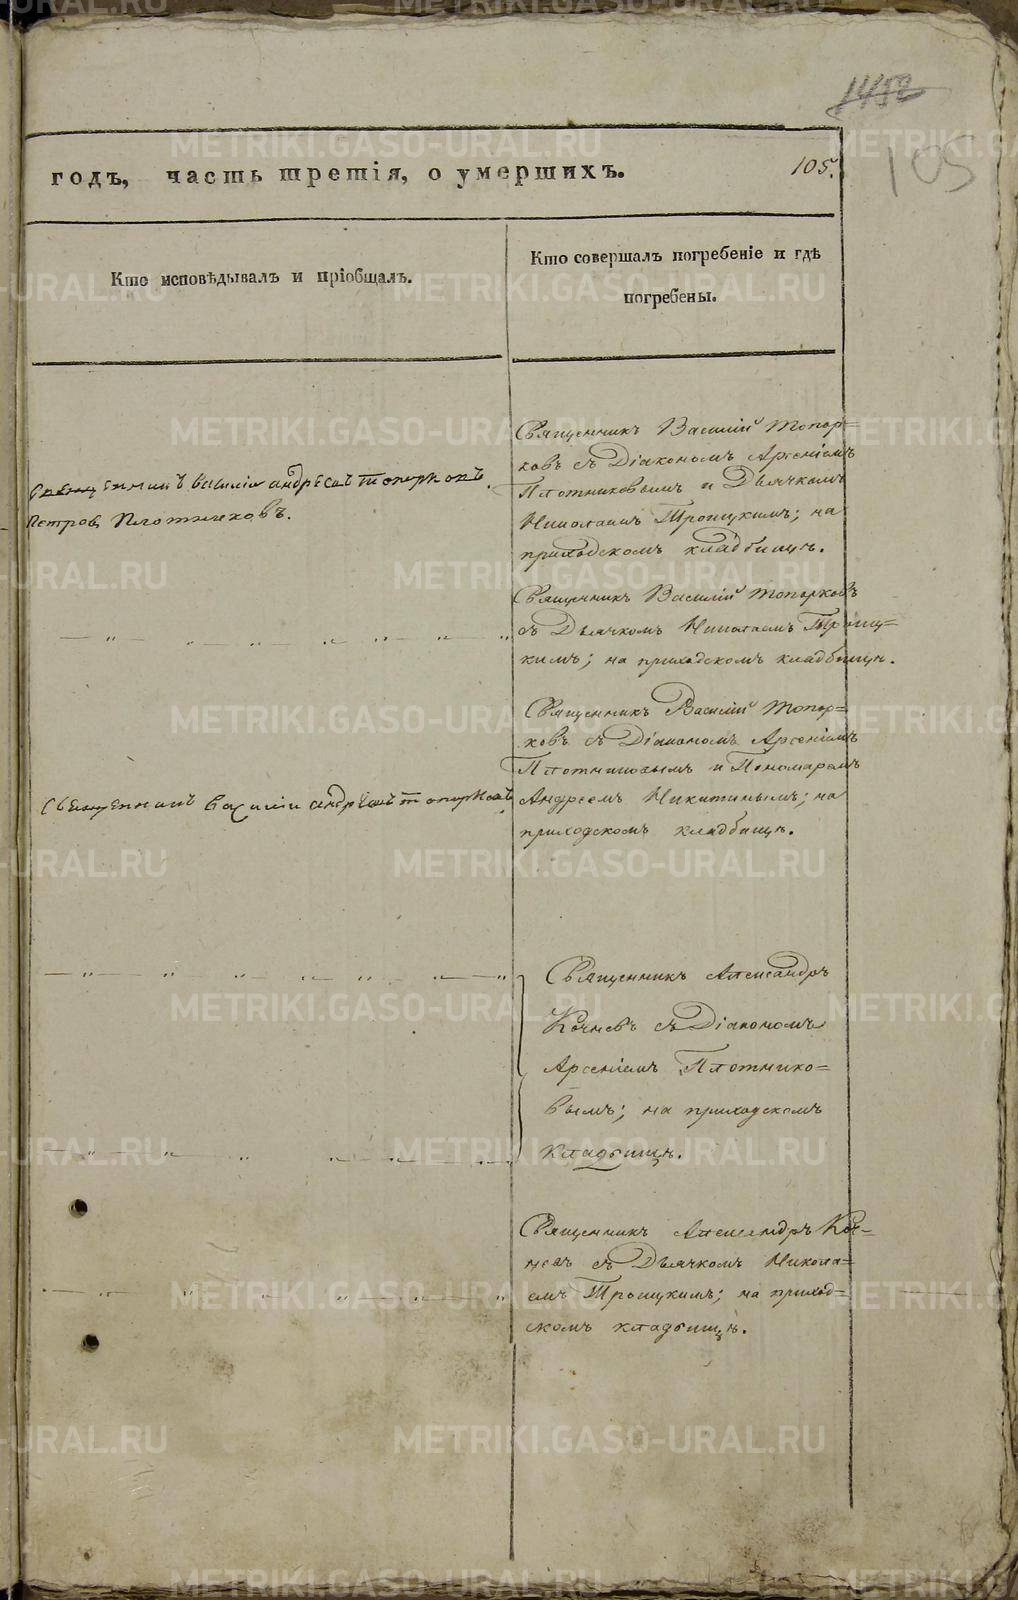 1452
105
годъ, часть третія, о умершихъ.
105.
Кто исповѣдывалъ и пріобщалъ.
Кто совершалъ погребеніе и гдѣ
погребены.
василіи андреевъ топорковъ.
Петровъ Плотниковъ.
Священникъ Василій Топор=
ковъ съ Діакономъ Арсеніемъ
Плотниковымъ и Дьячкомъ
Николаемъ Троицкимъ; на
приходскомъ кладбищѣ.
Священникъ Василій Топорковъ
съ Дьячкомъ Николаемъ Троиц=
кимъ; на приходскомъ кладбищѣ.
Священникъ Василій Топор=
ковъ съ Діакономъ Арсеніемъ
Плотниковымъ и Пономаремъ
Андреемъ Никитинымъ; на
приходскомъ кладбищѣ.
василіи андреевъ топорковъ
Священникъ Александръ
Кочневъ съ Діакономъ
Арсеніемъ Плотнико=
вымъ; на приходскомъ
кладбищѣ.
Священникъ Александръ Коч=
невъ съ Дьячкомъ Никола=
емъ Троицкимъ; на приход=
скомъ кладбищѣ.
METRIKI.GASO-URAL.RU